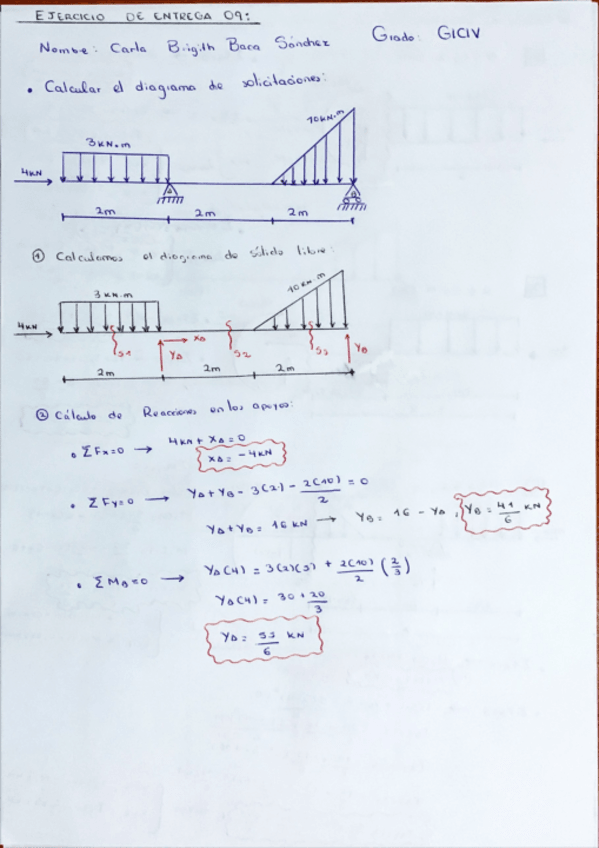 EJERCICIO DE ENTREGA 09:
Nombre: Carla Brigith Baca Sánchez Grado: GICIV
• Calcular el diagrama de solicitaciones:
10kN.m
3kN.m
4kN
A
B
2m 2m 2m
① Calculamos el diagrama de sólido libre:
10kN.m
3kN.m
4kN
XA
S1 YA S2 S3 YB
2m 2m 2m
② Cálculo de Reacciones en los apoyos:
• ΣFx=0 → 4kN + XA = 0
XA = -4kN
• ΣFy=0 → YA+YB - 3(2) - 2(10)/2 = 0
YA+YB = 16 kN → YB = 16 - YA , YB = 41/6 kN
• ΣMB=0 → YA(4) = 3(2)(5) + 2(10)/2 (2/3)
YA(4) = 30 + 20/3
YA = 55/6 kN